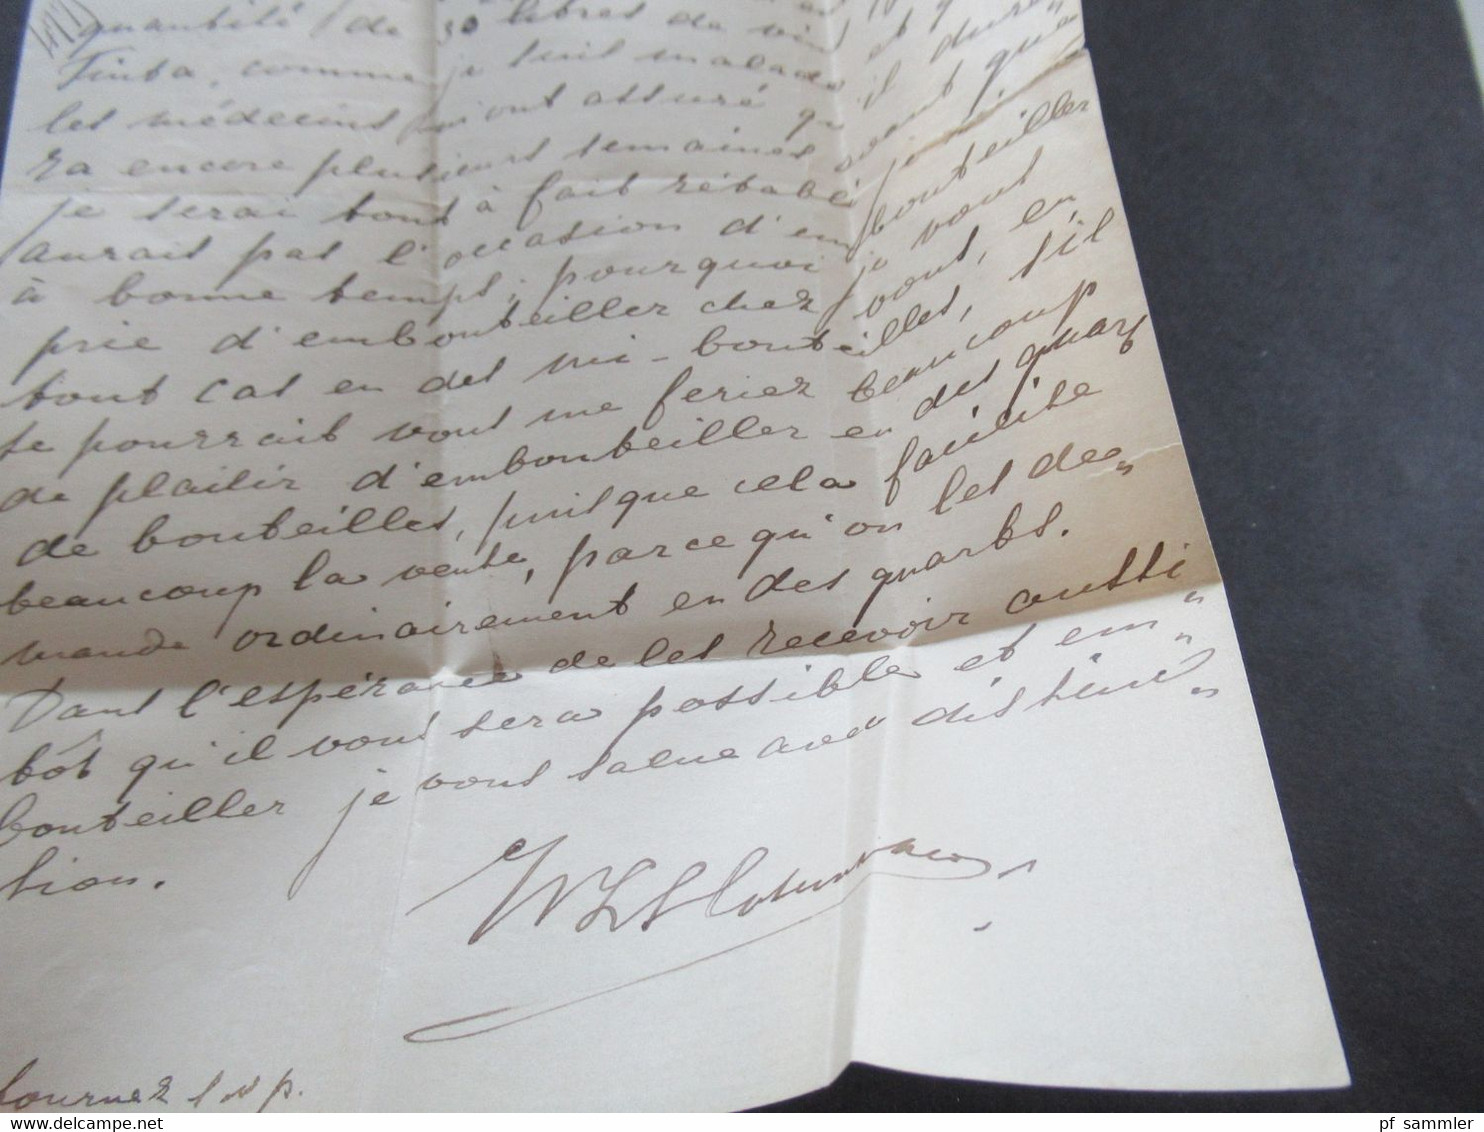 quantité de 30 litres de vin
Tinta, comme je suis malade et
les médecins m'ont assuré qu'il dure„
ra encore plusieurs semaines avant que
je serai tout à fait rétabli je n'„
aurait pas l'occasion d'embouteiller
à bonne temps; pourquoi je vous
prie d'embouteiller chez vous, en
tout cas en des mi-bouteilles, s'il
se pourrait vous me feriez beaucoup
de plaisir d'embouteiller en des quarts
de bouteilles, puisque cela facilite
beaucoup la vente, parce qu'on les de„
mande ordinairement en des quarts.
Dans l'espérance de les recevoir aussi
tôt qu'il vous sera possible et em„
bouteiller je vous salue avec distinc„
tion.
tournez s v p.
delcampe.net
pf_sammler